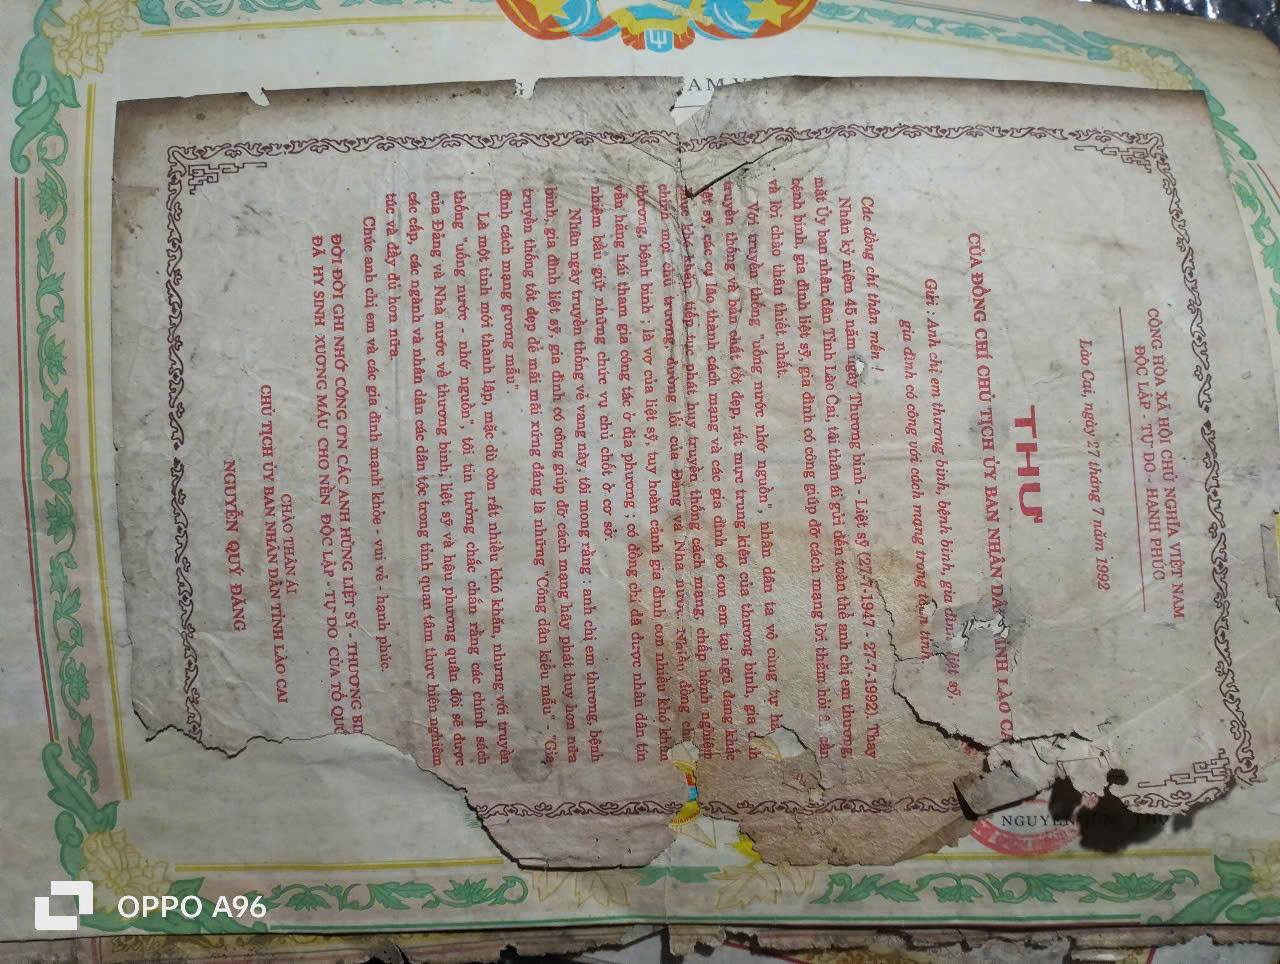 CỘNG HÒA XÃ HỘI CHỦ NGHĨA VIỆT NAM
ĐỘC LẬP - TỰ DO - HẠNH PHÚC
Lào Cai, ngày 27 tháng 7 năm 1992
THƯ
CỦA ĐỒNG CHÍ CHỦ TỊCH ỦY BAN NHÂN DÂN TỈNH LÀO CAI
Gửi : Anh chị em thương binh, bệnh binh, gia đình liệt sỹ,
gia đình có công với cách mạng trong toàn tỉnh
Các đồng chí thân mến !
Nhân kỷ niệm 45 năm ngày Thương binh - Liệt sỹ (27-7-1947 - 27-7-1992). Thay
mặt Ủy ban nhân dân Tỉnh Lào Cai, tôi thân ái gửi đến toàn thể anh chị em thương,
bệnh binh, gia đình liệt sỹ, gia đình có công giúp đỡ cách mạng lời thăm hỏi ân cần
và lời chào thân thiết nhất.
Với truyền thống "uống nước nhớ nguồn", nhân dân ta vô cùng tự
truyền thống và bản chất tốt đẹp, rất mực trung kiên của thương binh, gia đình
liệt sỹ, các cụ lão thành cách mạng và các gia đình có con em tại ngũ đang khắc
phục khó khăn, tiếp tục phát huy truyền thống cách mạng, chấp hành nghiêm
chỉnh mọi chủ trương, đường lối của Đảng và Nhà nước. Nhiều đồng chí
thương, bệnh binh : là vợ của liệt sỹ, tuy hoàn cảnh gia đình còn nhiều khó khăn
vẫn hăng hái tham gia công tác ở địa phương ; có đồng chí đã được nhân dân tín
nhiệm bầu giữ những chức vụ chủ chốt ở cơ sở.
Nhân ngày truyền thống vẻ vang này, tôi mong rằng : anh chị em thương, bệnh
binh, gia đình liệt sỹ, gia đình có công giúp đỡ cách mạng hãy phát huy hơn nữa
truyền thống tốt đẹp để mãi mãi xứng đáng là những "Công dân kiểu mẫu". "Gia
đình cách mạng gương mẫu".
Là một tỉnh mới thành lập, mặc dù còn rất nhiều khó khăn, nhưng với truyền
thống "uống nước - nhớ nguồn", tôi tin tưởng chắc chắn rằng các chính sách
của Đảng và Nhà nước về thương binh, liệt sỹ và hậu phương quân đội sẽ được
các cấp, các ngành và nhân dân các dân tộc trong tỉnh quan tâm thực hiện nghiêm
túc và đầy đủ hơn nữa.
Chúc anh chị em và các gia đình mạnh khỏe - vui vẻ - hạnh phúc.
ĐỜI ĐỜI GHI NHỚ CÔNG ƠN CÁC ANH HÙNG LIỆT SỸ - THƯƠNG BI
ĐÃ HY SINH XƯƠNG MÁU CHO NỀN ĐỘC LẬP - TỰ DO CỦA TỔ QUỐ
CHÀO THÂN ÁI
CHỦ TỊCH ỦY BAN NHÂN DÂN TỈNH LÀO CAI
NGUYỄN QUÝ ĐĂNG
NGUYỄN
OPPO A96